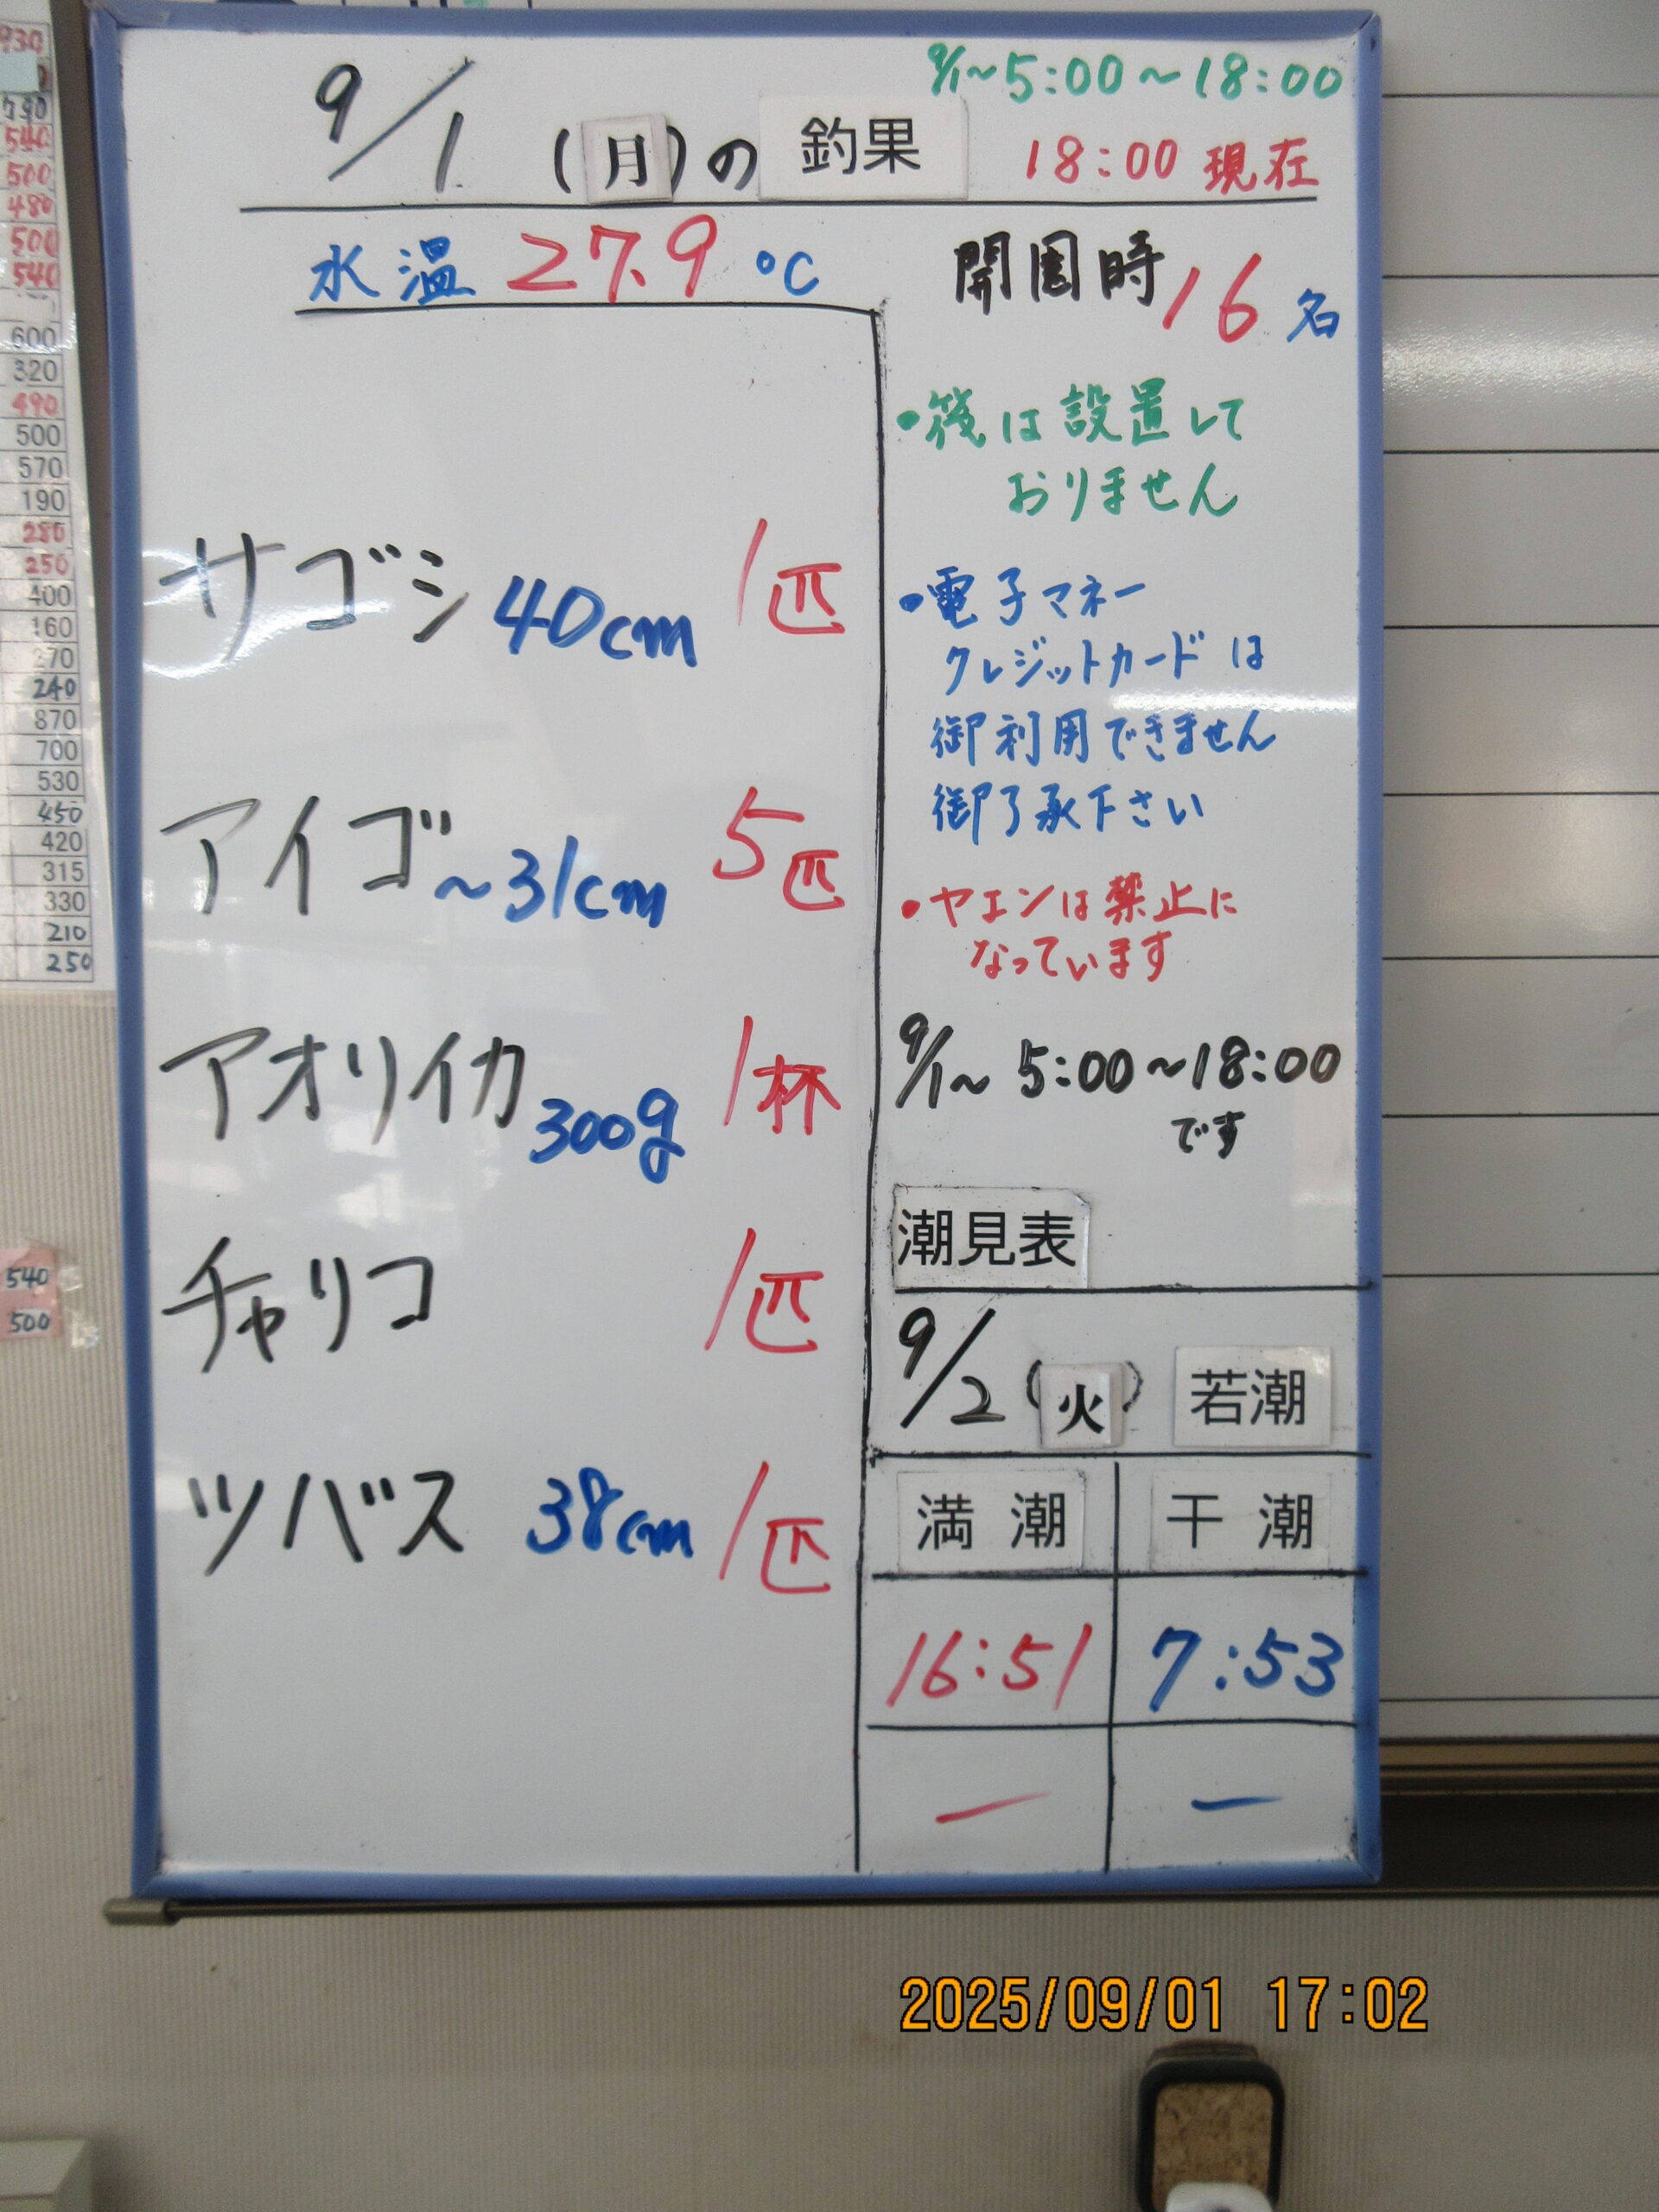 9/1~5:00~18:00
9/1 (月)の 釣果 18:00 現在
水温 27.9 ℃
開園時 16 名
サゴシ 40cm 1匹
アイゴ ~31cm 5匹
アオリイカ 300g 1杯
チャリコ 1匹
ツバス 38cm 1匹
・筏は設置して
おりません
・電子マネー
クレジットカードは
御利用できません
御了承下さい
・ヤエンは禁止に
なっています
9/1~ 5:00~18:00
です
潮見表
9/2 (火) 若潮
満 潮 干 潮
16:51 7:53
— —
930
790
540
500
480
500
540
600
320
490
500
570
190
280
250
400
160
270
240
870
700
530
450
420
315
330
210
250
540
500
2025/09/01 17:02